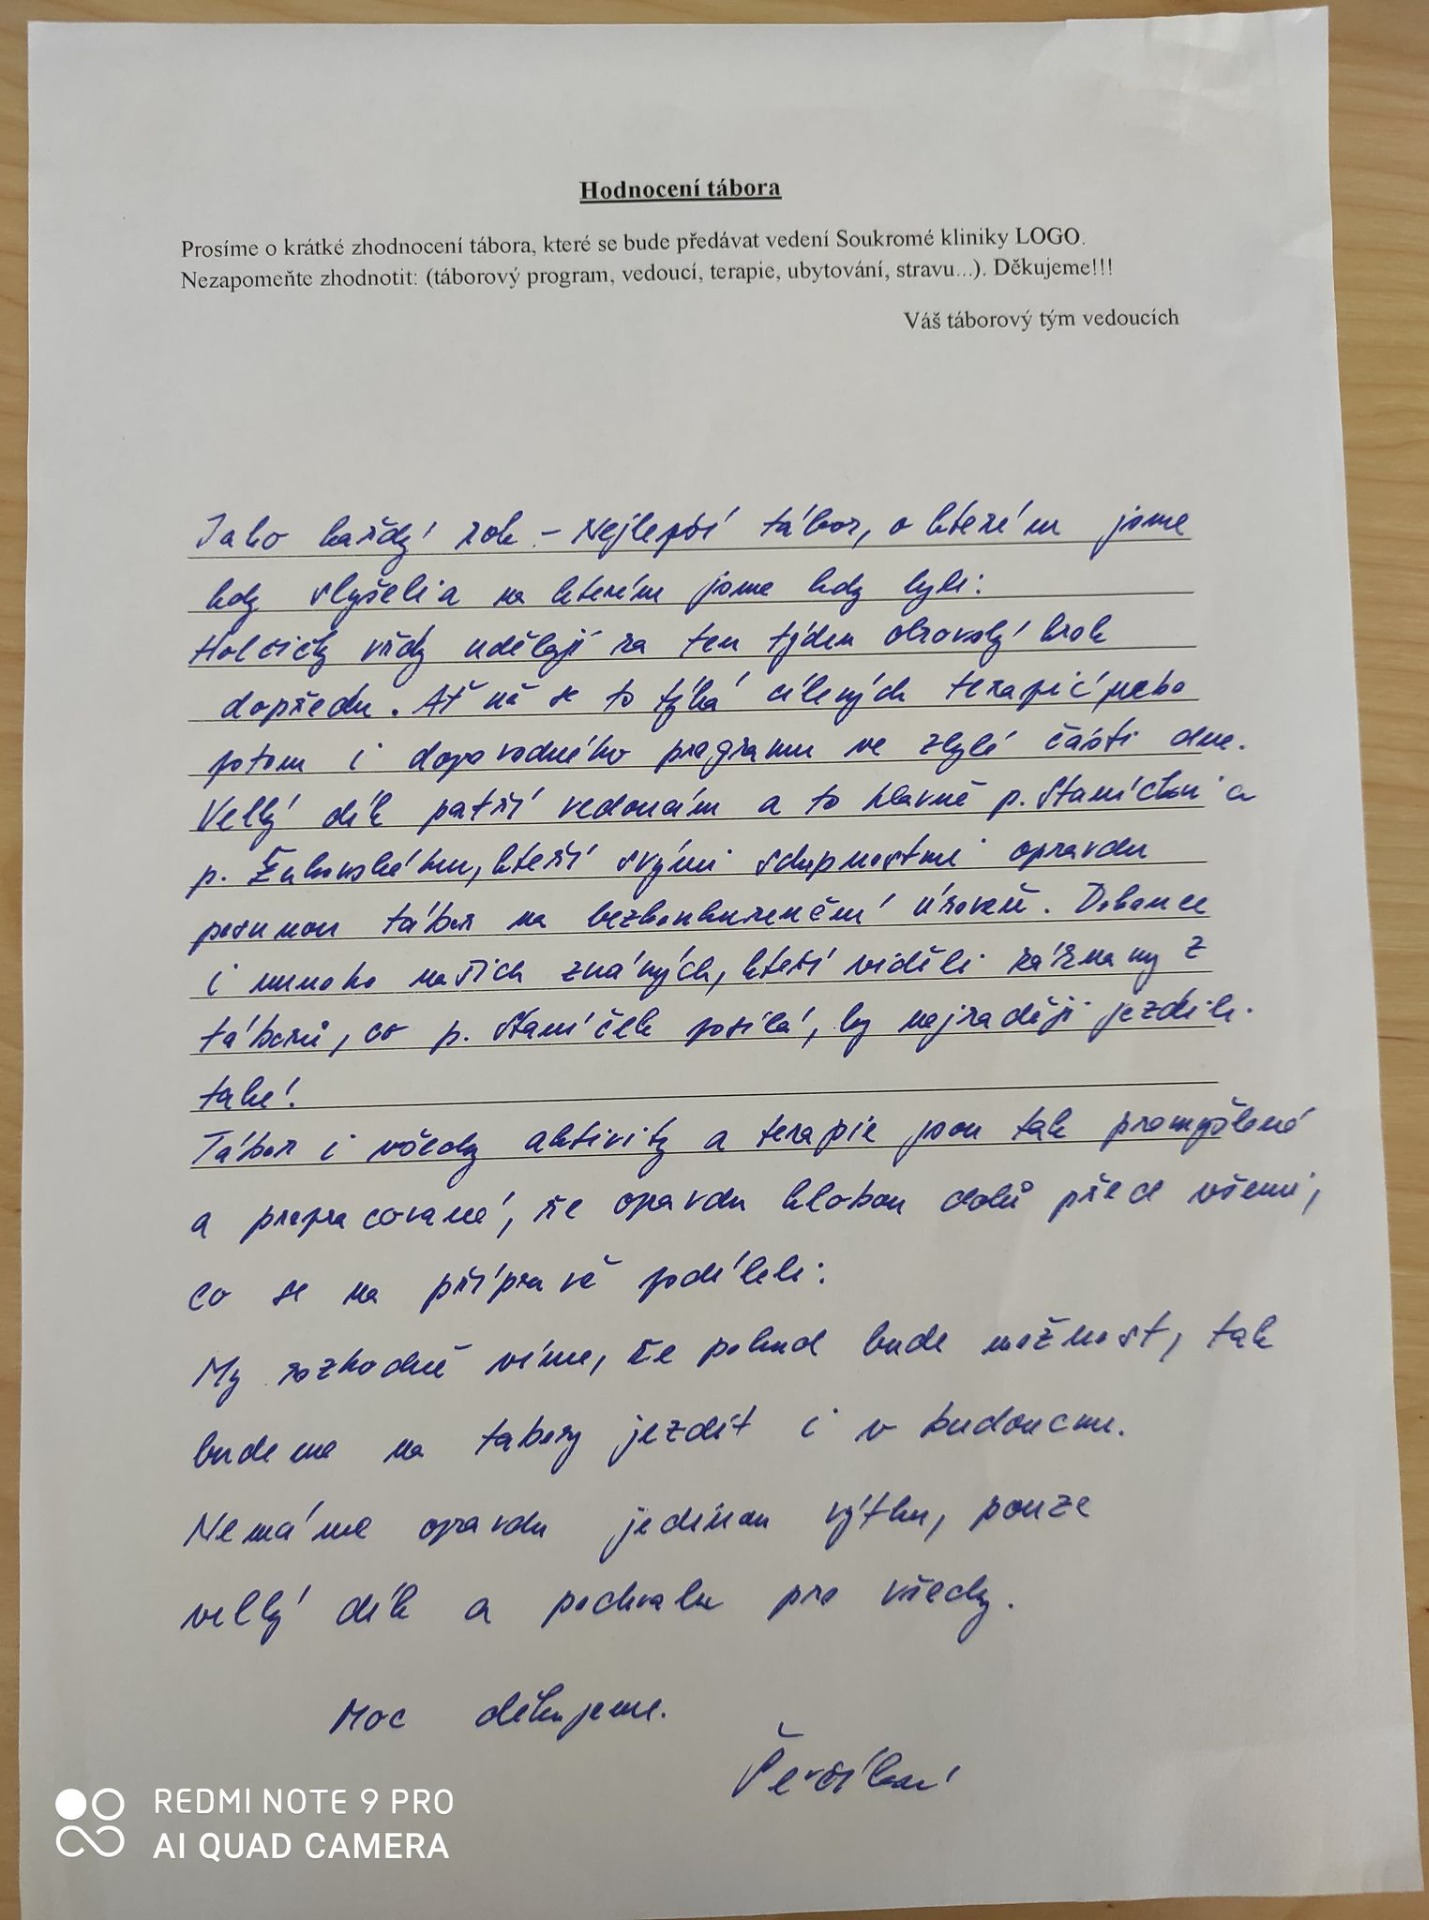 Hodnocení tábora
Prosíme o krátké zhodnocení tábora, které se bude předávat vedení Soukromé kliniky LOGO.
Nezapomeňte zhodnotit: (táborový program, vedoucí, terapie, ubytování, stravu...). Děkujeme!!!
Váš táborový tým vedoucích
Jako každý rok - Nejlepší tábor, o kterém jsme
kdy slyšeli a na kterém jsme kdy byli:
Holčičky vždy udělají za ten týden obrovský krok
dopředu. Ať už se to týká cílených terapií nebo
potom i doprovodného programu ve zbylé části dne.
Velký dík patří vedoucím a to hlavně p. Staníčkovi a
p. Žukovskému, kteří svými schopnostmi opravdu
posunou tábor na bezkonkurenční úroveň. Dokonce
i mnoho našich známých, kteří viděli záznamy z
táborů, co p. Staníček posílá, by nejraději jezdili
také!
Tábor i všechny aktivity a terapie jsou tak promyšlené
a propracované, že opravdu klobou dolů před všemi,
co se na přípravě podíleli:
My rozhodně víme, že pokud bude možnost, tak
budeme na tabory jezdit i v budoucnu.
Nemáme opravdu jedinou výtku, pouze
velký dík a pochvalu pro všechny.
Moc děkujeme.
REDMI NOTE 9 PRO
AI QUAD CAMERA